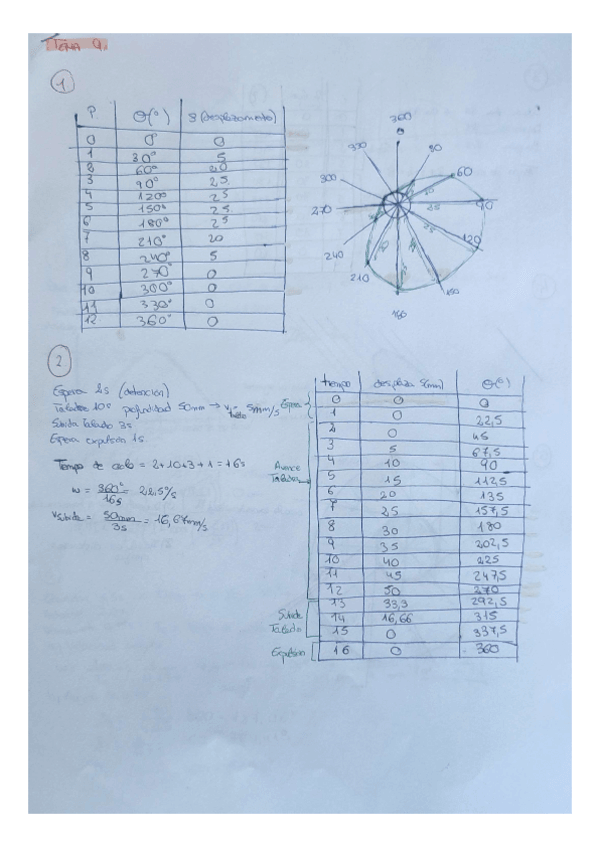 TEMA 9
1
P θ(°) S (desplazamiento)
0 0° 0
1 30° 5
2 60° 20
3 90° 25
4 120° 25
5 150° 25
6 180° 25
7 210° 20
8 240° 5
9 270° 0
10 300° 0
11 330° 0
12 360° 0
360
0
330
30
300
60
270
90
25
240
120
25
210
150
180
2
Espera 2s (detención)
Taladro 10s profundidad 50mm → V = 5mm/s
Subida taladro 3s
Espera expulsión 1s.
Tiempo de ciclo = 2+10+3+1 = 16s
ω = 360° / 16s = 22,5°/s
Vsubida = 50mm / 3s = 16,67mm/s
tiempo desplaza S(mm) θ(°)
Espera
0 0 0
1 0 22,5
2 0 45
3 5 67,5
Avance Taladro
4 10 90
5 15 112,5
6 20 135
7 25 157,5
8 30 180
9 35 202,5
10 40 225
11 45 247,5
12 50 270
13 33,3 292,5
Subida Taladro
14 16,66 315
15 0 337,5
Expulsión
16 0 360